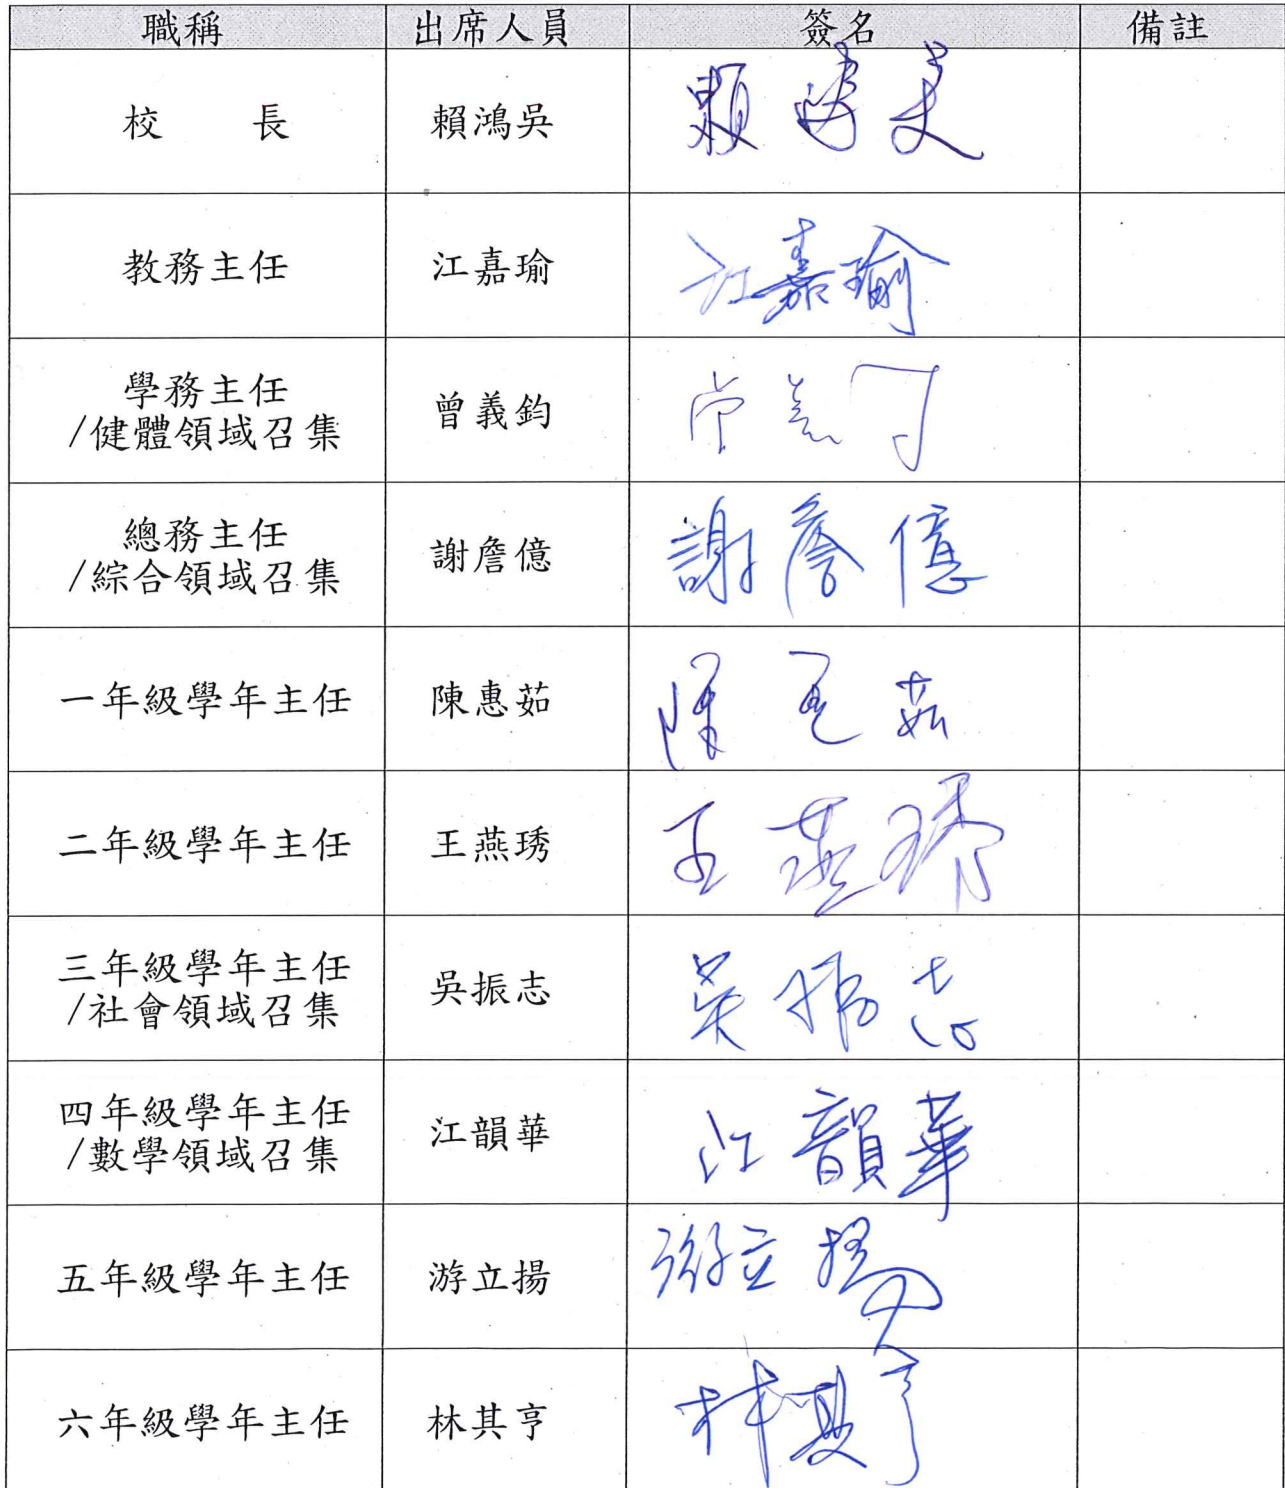 職稱 出席人員 簽名 備註
校 長 賴鴻吳
教務主任 江嘉瑜 江嘉瑜
學務主任
/健體領域召集 曾義鈞
總務主任
/綜合領域召集 謝詹億 謝詹億
一年級學年主任 陳惠茹 陳惠茹
二年級學年主任 王燕琇 王燕琇
三年級學年主任
/社會領域召集 吳振志 吳振志
四年級學年主任
/數學領域召集 江韻華 江韻華
五年級學年主任 游立揚 游立揚
六年級學年主任 林其亨 林其亨